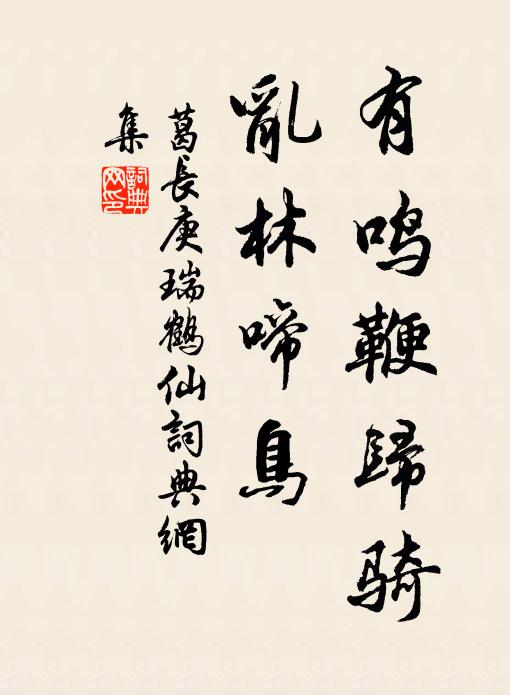 有鸣鞭歸骑
亂林啼鳥
葛長庚瑞鶴仙詞典網
集
詞典
网印